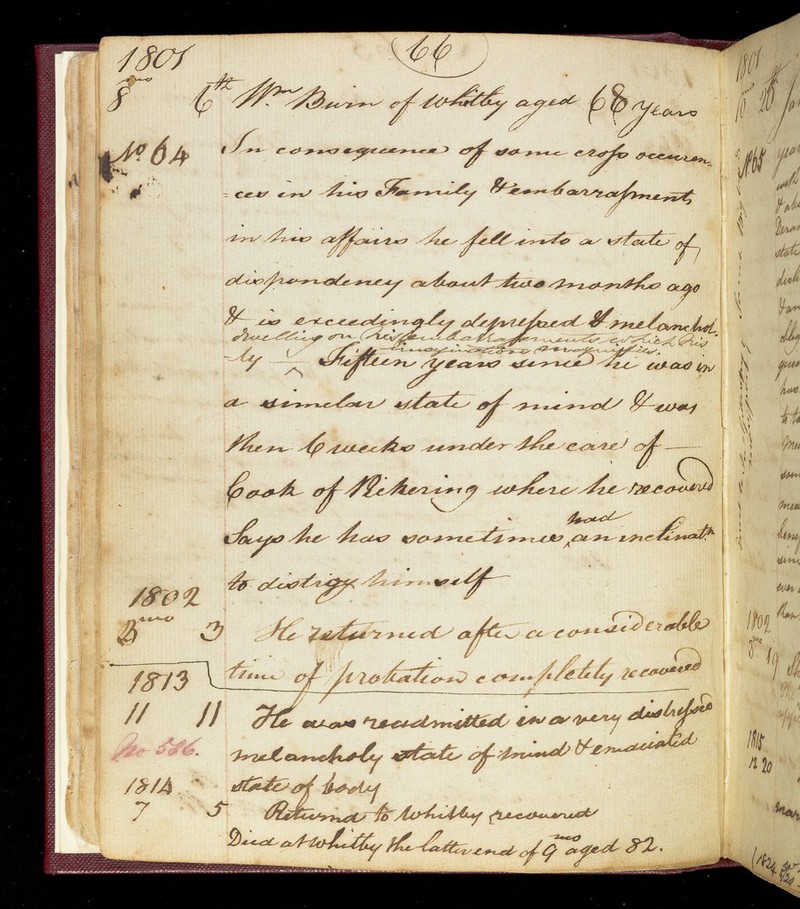 1801
66
8mo 6th Wm Burn of Whitby aged 68 years
No 64 In consequence of some cross occuren=
=ces in his Family & embarrassments
in his affairs he fell into a state of
dispondency about two months ago
& is exceedingly depressed & melanchol-
dwelling on his embarrassments which his
imagination magnifies.
-ly — Fifteen years since he was in
a simelar state of mind & was
then 6 weeks under the care of —
Cook of Pickering where he recovered
Says he has sometimes had an inclinatn
to distroy himself
1802
3 He returned after a considerable
time of probation completely recovered
1813
11 11 He was readmitted in a very distressed
No 586. melancholy state of mind & emaciated
1814 state of body
7 5 Returnd to Whitby recovered
Died at Whitby the latter end of 9mo aged 82.
1801
No 65
1802
19
1815
12 20